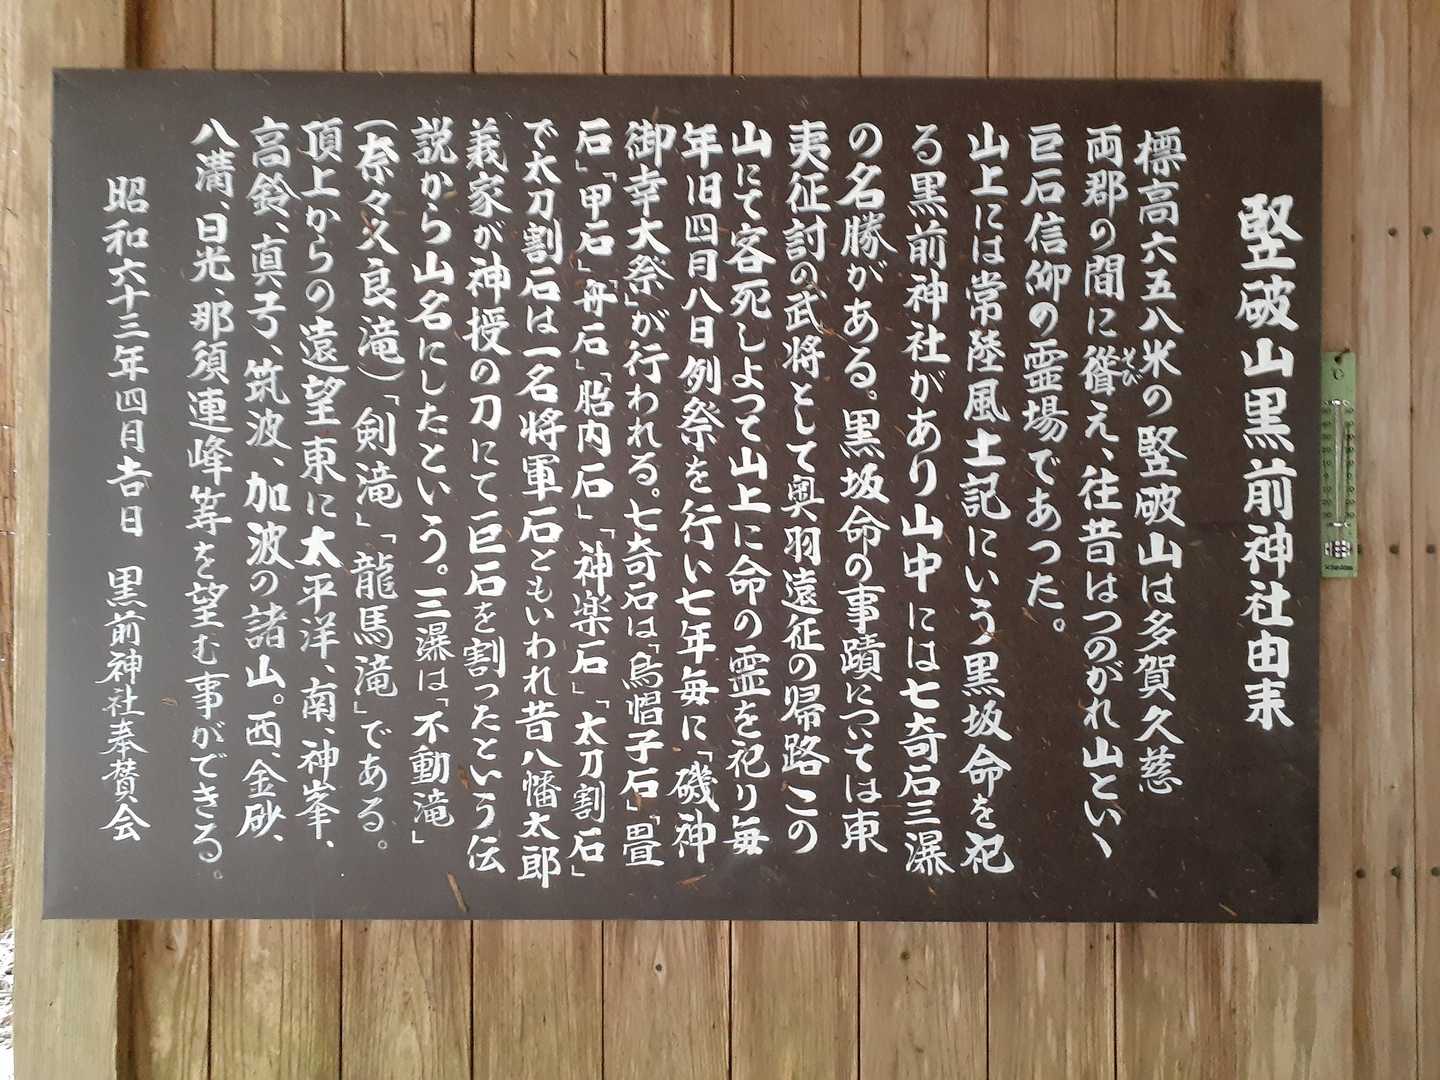 竪破山黒前神社由来
標高六五八米の竪破山は多賀久慈
両郡の間に聳え、往昔はつのがれ山といゝ
そび
巨石信仰の霊場であった。
山上には常陸風土記にいう黒坂命を祀
る黒前神社があり山中には七奇石三瀑
の名勝がある。黒坂命の事蹟については東
夷征討の武将として奥羽遠征の帰路この
山にて客死しよつて山上に命の霊を祀り毎
年旧四月八日例祭を行い七年毎に「磯神
御幸大祭」が行われる。七奇石は「烏帽子石」「畳
石」「甲石」「舟石」「胎内石」「神楽石」「太刀割石」
で太刀割石は一名将軍石ともいわれ昔八幡太郎
義家が神授の刀にて巨石を割ったという伝
説から山名にしたという。三瀑は「不動滝」
(奈々久良滝)「剣滝」「龍馬滝」である。
頂上からの遠望東に太平洋、南、神峯、
高鈴、真弓、筑波、加波の諸山。西、金砂、
八溝、日光、那須連峰等を望む事ができる。
昭和六十三年四月吉日 黒前神社奉賛会